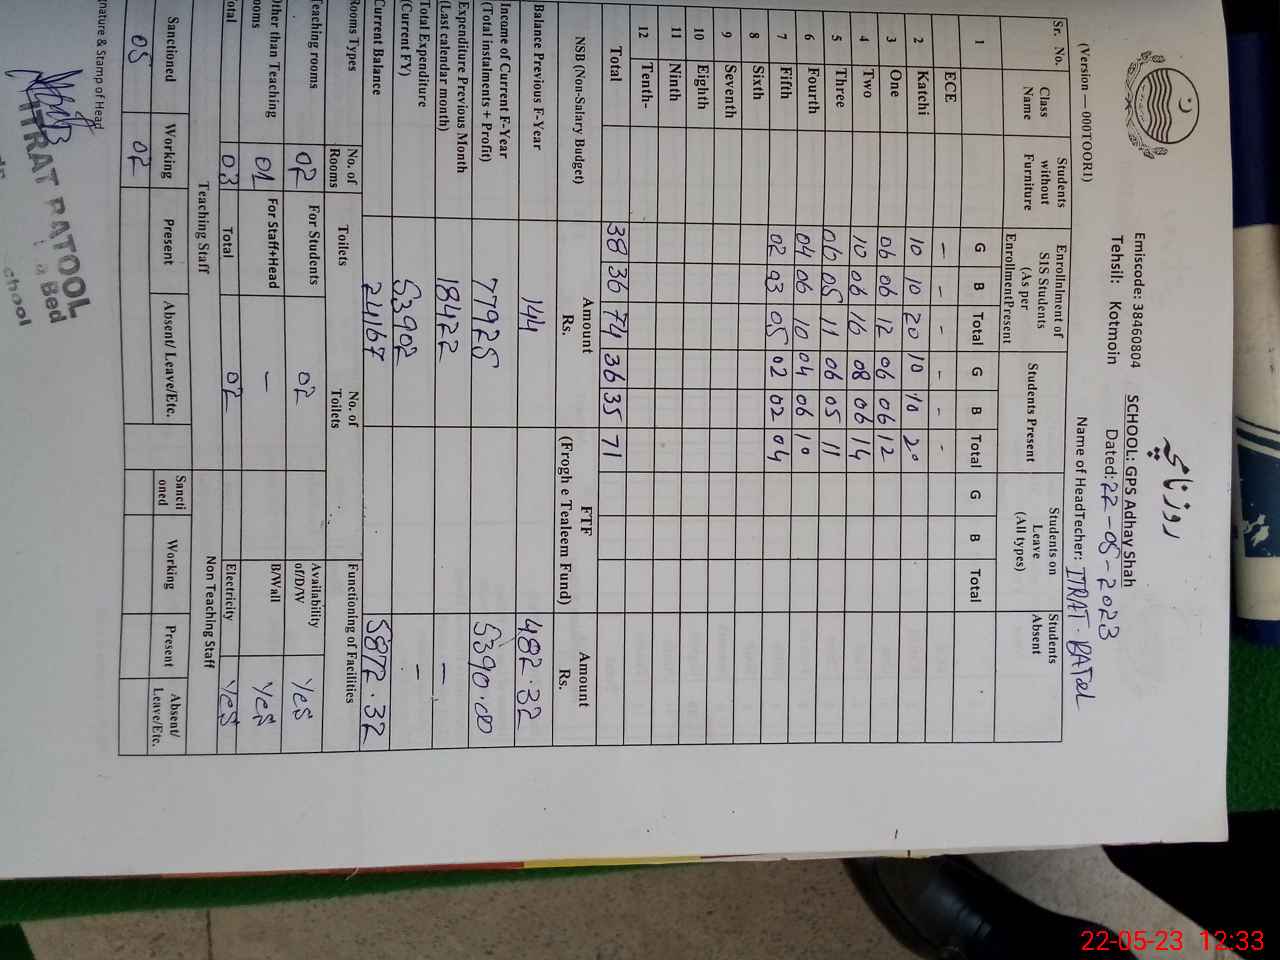 روزنامچہ
Emiscode: 38460804 SCHOOL: GPS Adhay Shah
Tehsil: Kotmoin Dated: 22-05-2023
(Version — 000TOOR1) Name of HeadTecher: ITRAT. BATOOL
Sr. No. Class Name Students without Furniture Enrollniment of SIS Students (As per EnrollmentPresent Students Present Students on Leave (All types) Students Absent
G B Total G B Total G B Total
1 ECE - - - - - -
2 Katchi 10 10 20 10 10 20
3 One 06 06 12 06 06 12
4 Two 10 06 16 08 06 14
5 Three 06 05 11 06 05 11
6 Fourth 04 06 10 04 06 10
7 Fifth 02 03 05 02 02 04
8 Sixth
9 Seventh
10 Eighth
11 Ninth
12 Tenth-
Total 38 36 74 36 35 71
NSB (Non-Salary Budget) Amount Rs. FTF (Frogh e Tealeem Fund) Amount Rs.
Balance Previous F-Year 144 482.32
Income of Current F-Year (Total instalments + Profit) 77925 5390.00
Expenditure Previous Month (Last calendar month) 18422 -
Total Expenditure (Current FY) 53902 -
Current Balance 24167 5872.32
Rooms Types No. of Rooms Toilets No. of Toilets Functioning of Facilities
Teaching rooms 02 For Students 02 Availability of/D/W Yes
Other than Teaching rooms 01 For Staff+Head - B/Wall Yes
Total 03 Total 02 Electricity Yes
Teaching Staff Non Teaching Staff
Sanctioned Working Present Absent/ Leave/Etc. Sancti oned Working Present Absent/ Leave/Etc.
05 02
nature & Stamp of Head
ITRAT BATOOL
Bed
chool
22-05-23 12:33